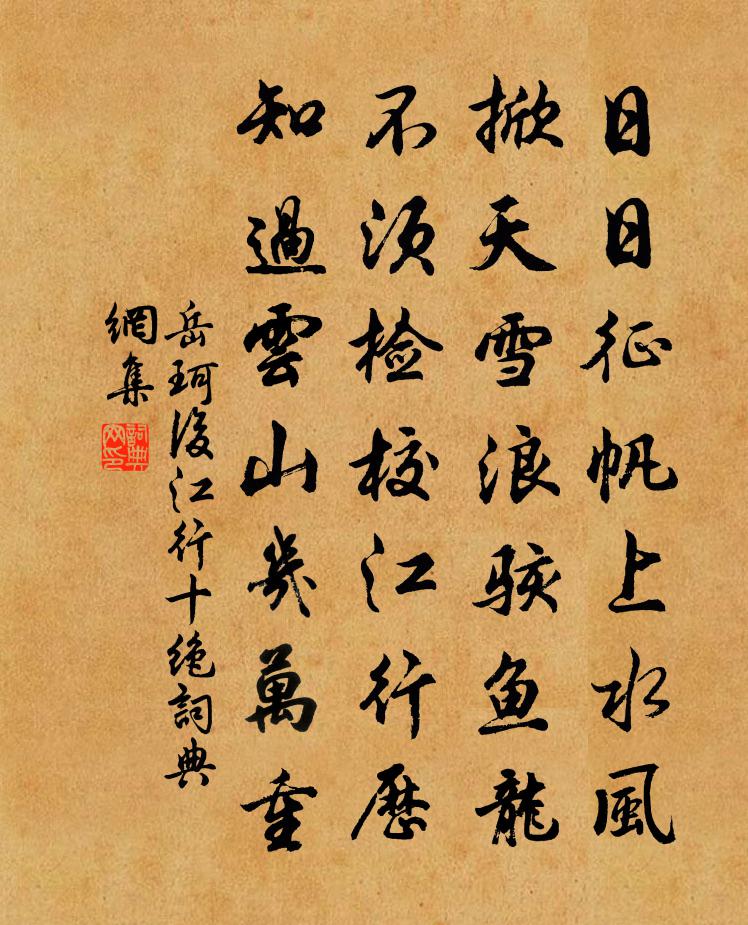 日日征帆上水風
掀天雪浪駭鱼龍
不須检校江行歷
知過雲山幾萬重
岳珂後江行十绝詞典
網集
詞典網印